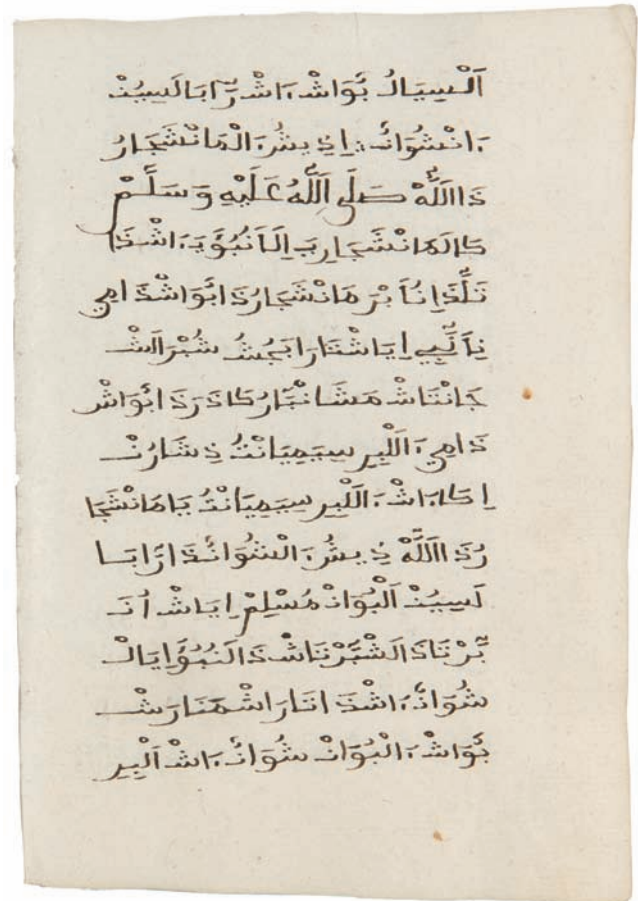 اَلْسِيَالُ بُوَاشْ ،اَشْ رَّابَالَسِيُنْ
،اَنْشُوَانُّ: اِذِيشُ، اَلْمَانْشَجَارُ
ذَااللَّهْ صَلَّي اللَّهُ عَلَيْهِ وَسَلَّمْ
كَالَمَانْشَجَارِيَ اِلَنُبُوَّيَ ،اَشْذَا
تَلَّذَ اِنُاَبْرَ مَانْشَجَارُ ذَابُوَاشْ ذَامِي
نِاَنَّبِي اِيَاشْتَارَا بَجُشُ شُبْرَالَشْ
جَانْتَاشْ مَشَانْبَّارُ كَاذَرَذَابُوَاشْ
ذَامِي ،اَللْبِرِسِيَمِيَانْتُ ذِشَارُنْ
اِكَا ،اَشْ ،اَللْبِرِسِيَمِيَانْتُ يَا مَانْشَجَا
رُذَااللَّهْ ذِيشُ ،اَلْشُوَانُّ ذَارَّابَا
لَسِيُنْ اَلْبُوَانْ مُسْلِمْ اِيَاشْ اُنَ
بَّرْتَاذَالَشْبَّرْتَاشْ ذَالَنُبُوَّ اِيَالْ
شُوَانُّ ،اَشْذَا اتَارَاشْ مَنَارَشْ
بُوَاشْ ،اَلْبُوَانْ شُوَانُّ ،اَشْ اَلْبِرِ